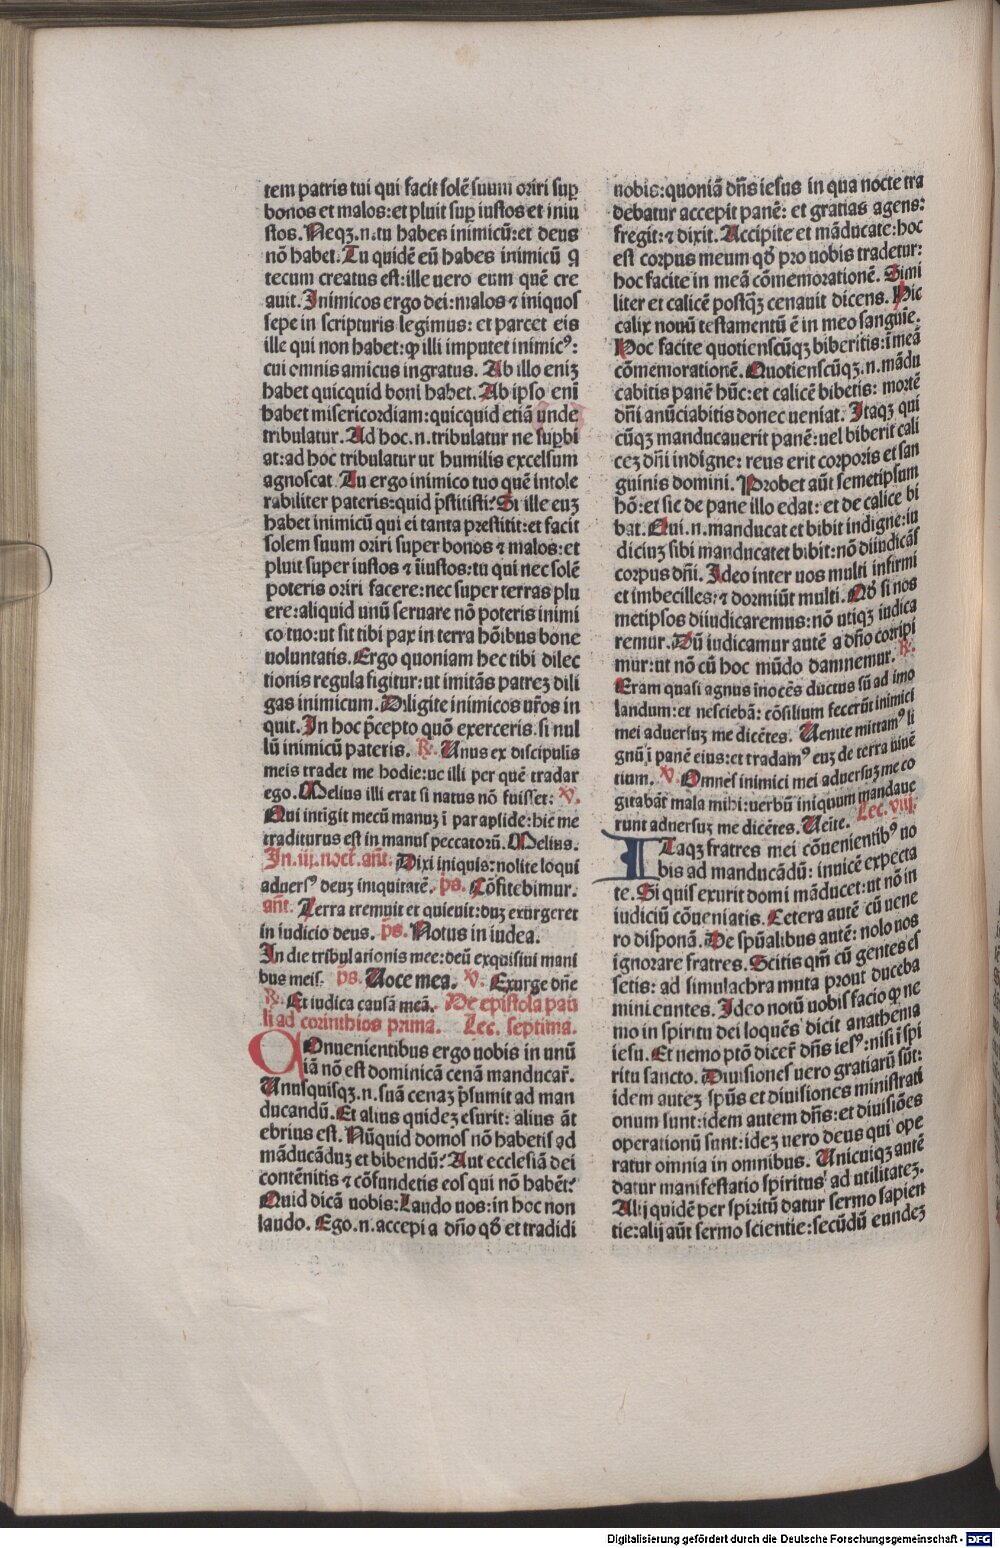 tem patris tui qui facit solē suum oriri suꝑ
bonos et malos: et pluit suꝑ iustos et iniu
stos. Neqꝫ .n. tu habes inimicū: et deus
nō habet. Tu quidē eū habes inimicū q
tecum creatus est: ille uero eum quē cre
auit. Inimicos ergo dei: malos ⁊ iniquos
sepe in scripturis legimus: et parcet eis
ille qui non habet: ꝙ illi imputet inimicꝰ:
cui omnis amicus ingratus. Ab illo enīꝫ
habet quicquid boni habet. Ab ipso enī
habet misericordiam: quicquid etiā unde
tribulatur. Ad hoc .n. tribulatur ne suꝑbi
at: ad hoc tribulatur ut humilis excelsum
agnoscat. Tu ergo inimico tuo quē intole
rabiliter pateris: quid p̄stitisti? Si ille euꝫ
habet inimicū qui ei tanta prestitit: et facit
solem suum oriri super bonos ⁊ malos: et
pluit super iustos ⁊ īiustos: tu qui nec solē
poteris oriri facere: nec super terras plu
ere: aliquid unū seruare nō poteris inimi
co tuo: ut sit tibi pax in terra hōibus bone
uoluntatis. Ergo quoniam hec tibi dilec
tionis regula figitur: ut imitās patreꝫ dili
gas inimicum. Diligite inimicos ur̄os in
quit. In hoc p̄cepto quō exerceris. si nul
lū inimicū pateris. ℟. Unus ex discipulis
meis tradet me hodie: ue illi per quē tradar
ego. Melius illi erat si natus nō fuisset: ℣.
Qui intīgit mecū manuꝫ ī parapside: hic me
traditurus est in manus peccatorū. Melius.
In .iij. noct̄. an̄t. Dixi iniquis: nolite loqui
aduersꝰ deuꝫ iniquitatē. p̄s. Cōfitebimur.
an̄t. Terra tremuit et quieuit: duꝫ exurgeret
in iudicio deus. p̄s. Notus in iudea.
In die tribulationis mee: deū exquisiui mani
bus meis. p̄s. Uoce mea. ℣. Exurge dn̄e
℟. Et iudica causā meā. De epistola pau
li ad corinthios prima. Lec. septima.
COnuenientibus ergo uobis in unū
iā nō est dominicā cenā manducar̄.
Unusquisqꝫ .n. suā cenaꝫ p̄sumit ad man
ducandū. Et alius quideꝫ esurit: alius āt
ebrius est. Nūquid domos nō habetis ad
māducāduꝫ et bibendū? Aut ecclesiā dei
contēnitis ⁊ cōfundetis eos qui nō habēt?
Quid dicā uobis: Laudo uos: in hoc non
laudo. Ego .n. accepi a dn̄o qḋ et tradidi
nobis: quoniā dn̄s iesus in qua nocte tra
debatur accepit panē: et gratias agens:
fregit: ⁊ dixit. Accipite et māducate: hoc
est corpus meum qḋ pro nobis tradetur:
hoc facite in meā cōmemorationē. Simi
liter et calicē postq̄ꝫ cenauit dicens. Hic
calix nouū testamentū ē in meo sanguīe.
Hoc facite quotienscūqꝫ biberitis: ī meā
cōmemorationē. Quotienscūqꝫ .n. mādu
cabitis panē hūc: et calicē bibetis: mortē
dn̄i anūciabitis donec ueniat. Itaqꝫ qui
cūqꝫ manducauerit panē: uel biberit cali
ceꝫ dn̄i indigne: reus erit corporis et san
guinis domini. Probet aūt semetipsum
hō: et sic de pane illo edat: et de calice bi
bat. Qui .n. manducat et bibit indigne: iu
diciuꝫ sibi manducatet bibit: nō diiudicās
corpus dn̄i. Ideo inter uos multi infirmi
et imbecilles: ⁊ dormiūt multi. Qḋ si nos
metipsos diiudicaremus: nō utiqꝫ iudica
remur. Dū iudicamur autē a dn̄o corripi
mur: ut nō cū hoc mūdo damnemur. ℟.
Eram quasi agnus īnocēs ductus sū ad imo
landum: et nesciebā: cōsilium fecerūt inimici
mei aduersuꝫ me dicētes. Uenite mittamꝰ li
gnū ī panē eius: et tradamꝰ euꝫ de terra uiuē
tium. ℣. Omnes inimici mei aduersuꝫ me co
gitabāt mala mihi: uerbū iniquum mandaue
runt aduersuꝫ me dicētes. Ueīte. Lec. viij.
ITaqꝫ fratres mei cōuenientibꝰ uo
bis ad manducādū: inuicē expecta
te. Si quis exurit domi māducet: ut nō in
iudiciū cōueniatis. Cetera autē cū uene
ro disponā. De spūalibus autē: nolo uos
ignorare fratres. Scitis qm̄ cū gentes es
setis: ad simulachra muta prout duceba
mini euntes. Ideo notū uobis facio ꝙ ne
mo in spiritu dei loquēs dicit anathema
iesu. Et nemo ptō dicer̄ dn̄s iesꝰ: nisi ī spi
ritu sancto. Diuisiones uero gratiarū sūt:
idem auteꝫ spūs et diuisiones ministrati
onum sunt: idem autem dn̄s: et diuisiōes
operationū sunt: ideꝫ uero deus qui ope
ratur omnia in omnibus. Unicuiqꝫ autē
datur manifestatio spiritus ad utilitateꝫ.
Alij quidē per spiritū datur sermo sapien
tie: alij aūt sermo scientie: secūdū eundeꝫ
Digitalisierung gefördert durch die Deutsche Forschungsgemeinschaft - DFG